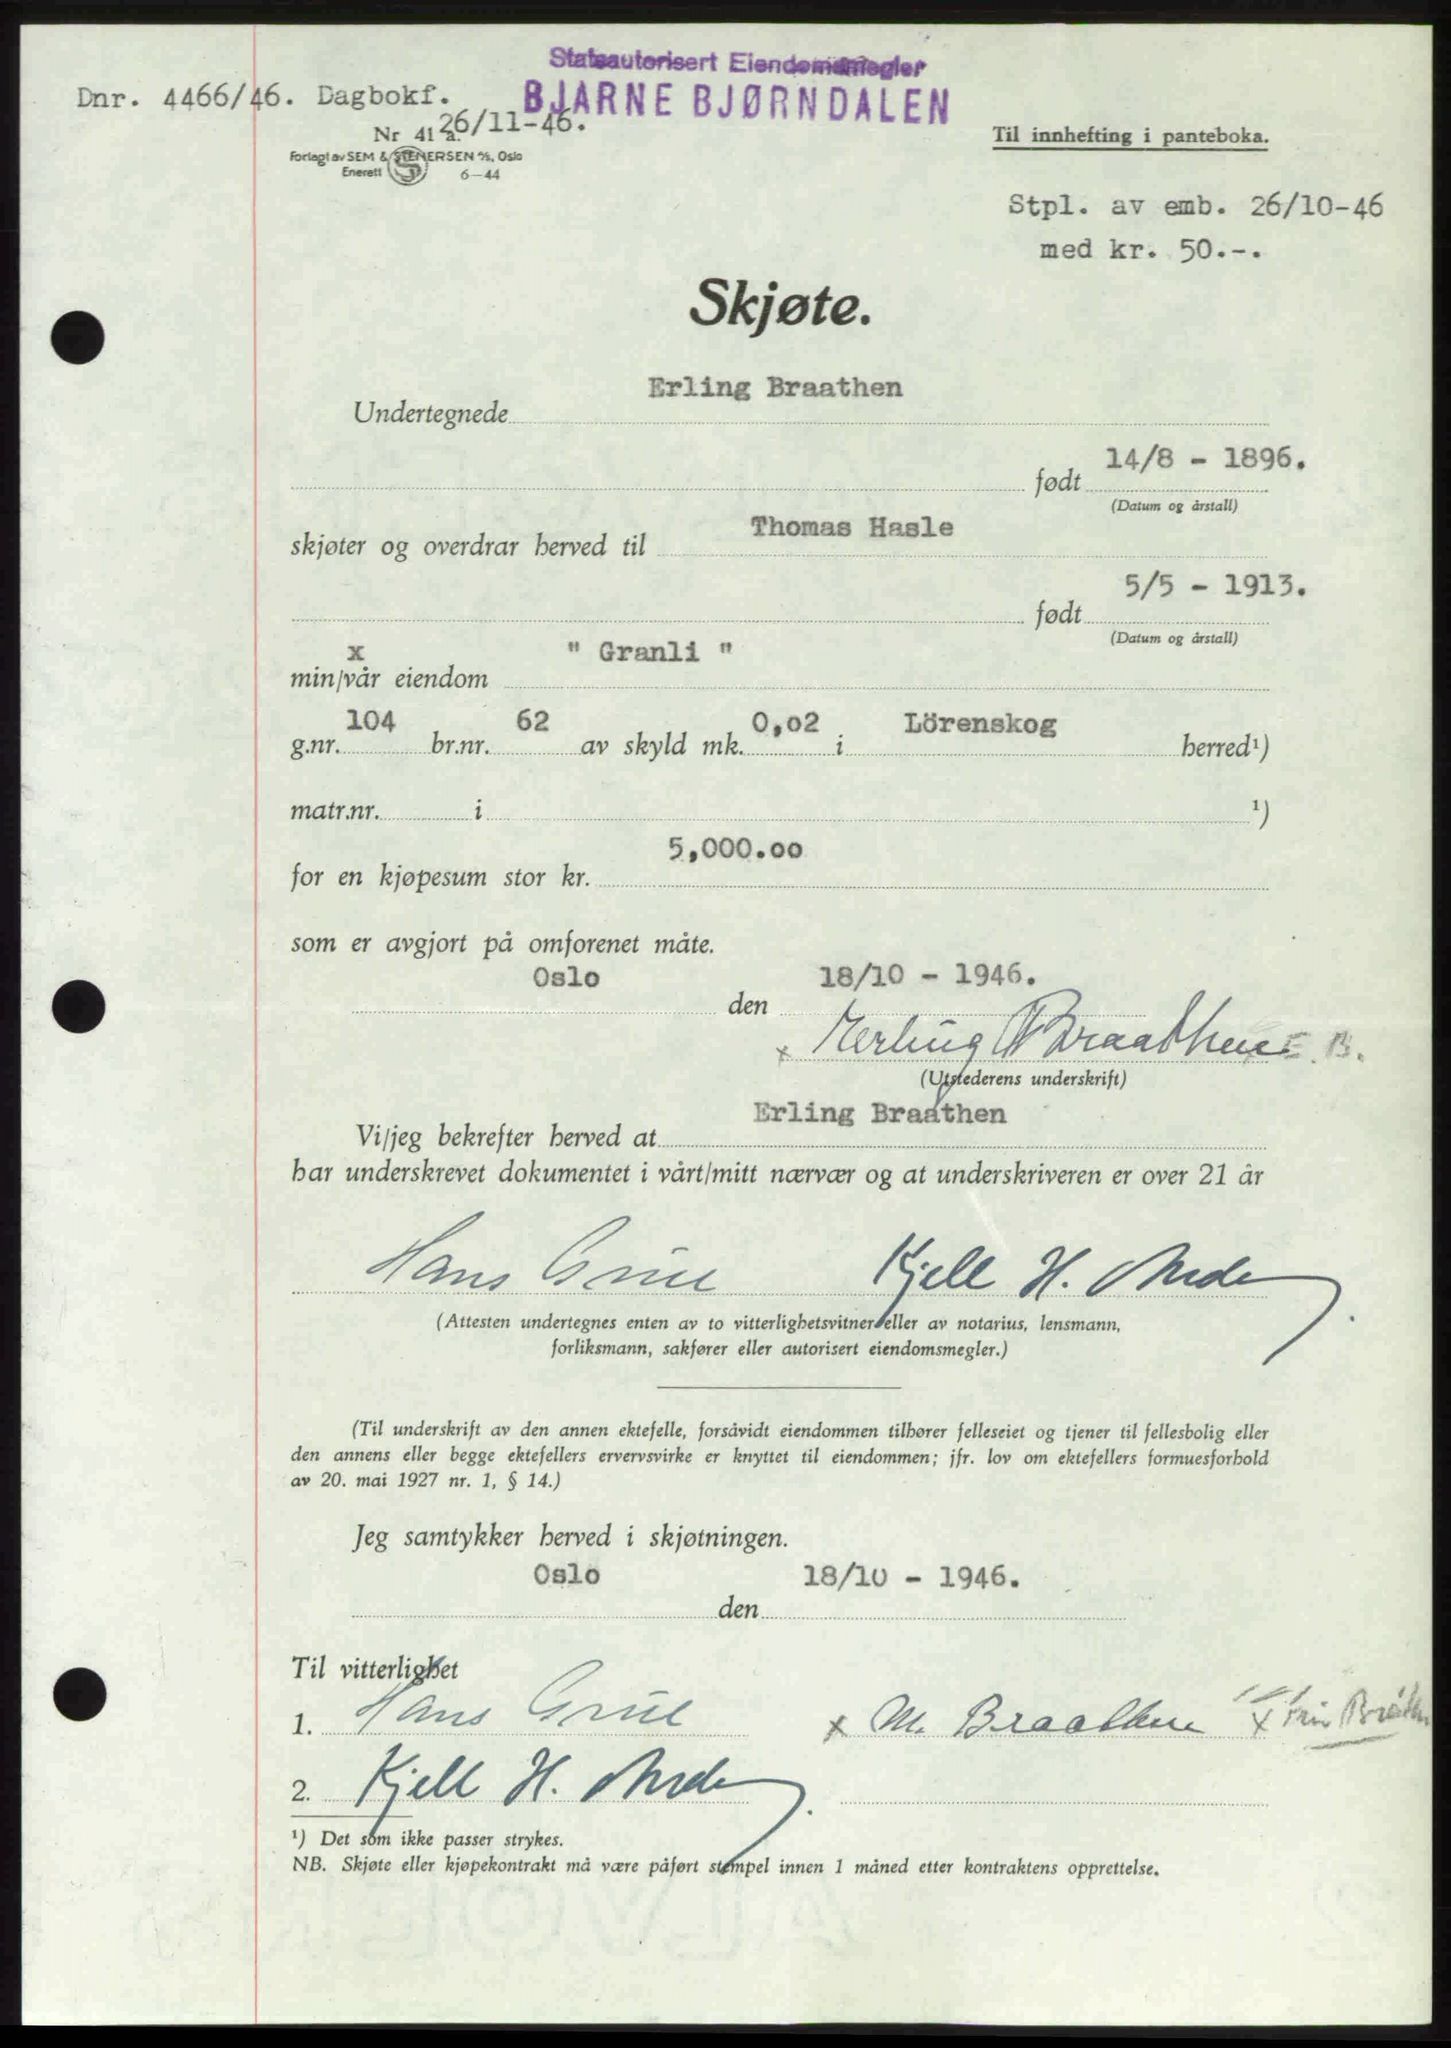 Statsautorisert Eiendomsmegler
BJARNE BJØRNDALEN
Dnr. 4466/46. Dagbokf.
26/11-46.
Nr 41 a.
Forlagt av SEM & STENERSEN A/S, Oslo
Enerett 6-44
Til innhefting i panteboka.
Stpl. av emb. 26/10-46
med kr. 50.-.
Skjøte.
Undertegnede Erling Braathen
født 14/8 - 1896.
(Datum og årstall)
skjøter og overdrar herved til Thomas Hasle
født 5/5 - 1913.
(Datum og årstall)
x
min/vår eiendom " Granli "
g.nr. 104 br.nr. 62 av skyld mk. 0,02 i Lörenskog herred¹)
matr.nr. i ¹)
for en kjøpesum stor kr. 5,000.00
som er avgjort på omforenet måte.
Oslo den 18/10 - 1946.
x Erling Braathen E. B.
(Utstederens underskrift)
Vi/jeg bekrefter herved at Erling Braathen
har underskrevet dokumentet i vårt/mitt nærvær og at underskriveren er over 21 år
Hans Grue Kjell H.
(Attesten undertegnes enten av to vitterlighetsvitner eller av notarius, lensmann,
forliksmann, sakfører eller autorisert eiendomsmegler.)
(Til underskrift av den annen ektefelle, forsåvidt eiendommen tilhører felleseiet og tjener til fellesbolig eller
den annens eller begge ektefellers ervervsvirke er knyttet til eiendommen; jfr. lov om ektefellers formuesforhold
av 20. mai 1927 nr. 1, § 14.)
Jeg samtykker herved i skjøtningen.
Oslo den 18/10 - 1946.
Til vitterlighet
1. Hans Grue x M. Braathen x
2. Kjell H.
¹) Det som ikke passer strykes.
NB. Skjøte eller kjøpekontrakt må være påført stempel innen 1 måned etter kontraktens opprettelse.